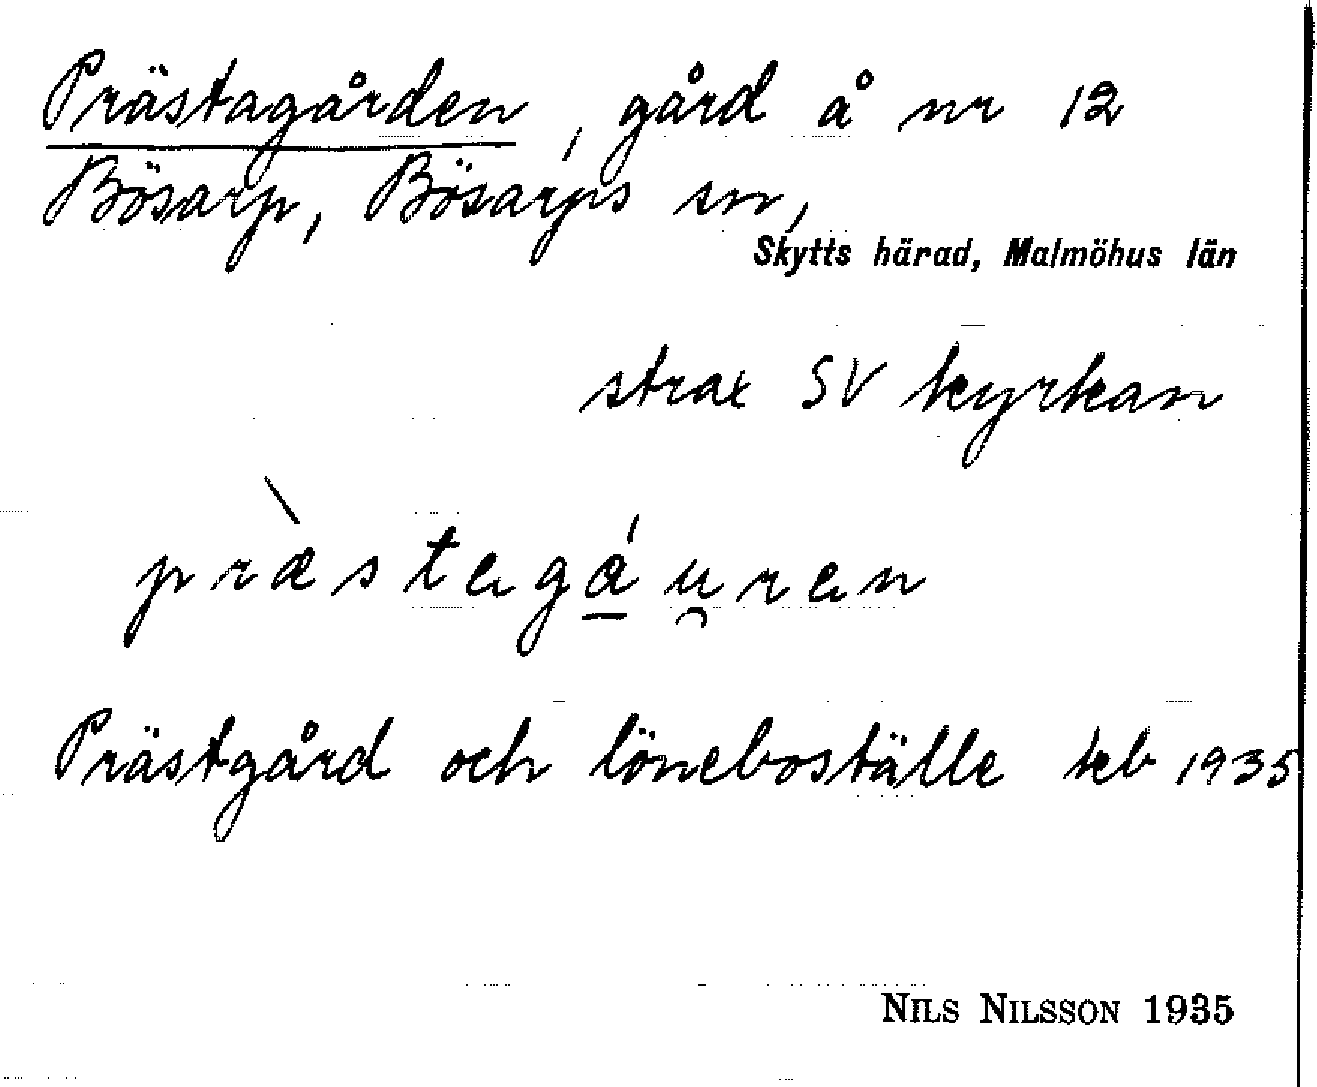 Prästagården, gård å nr 12
Bösarp, Bösarps sn,
Skytts härad, Malmöhus län
strax SV kyrkan
præ̀stegá̱u̯ren
Prästgård och löneboställe teb 1935
NILS NILSSON 1935